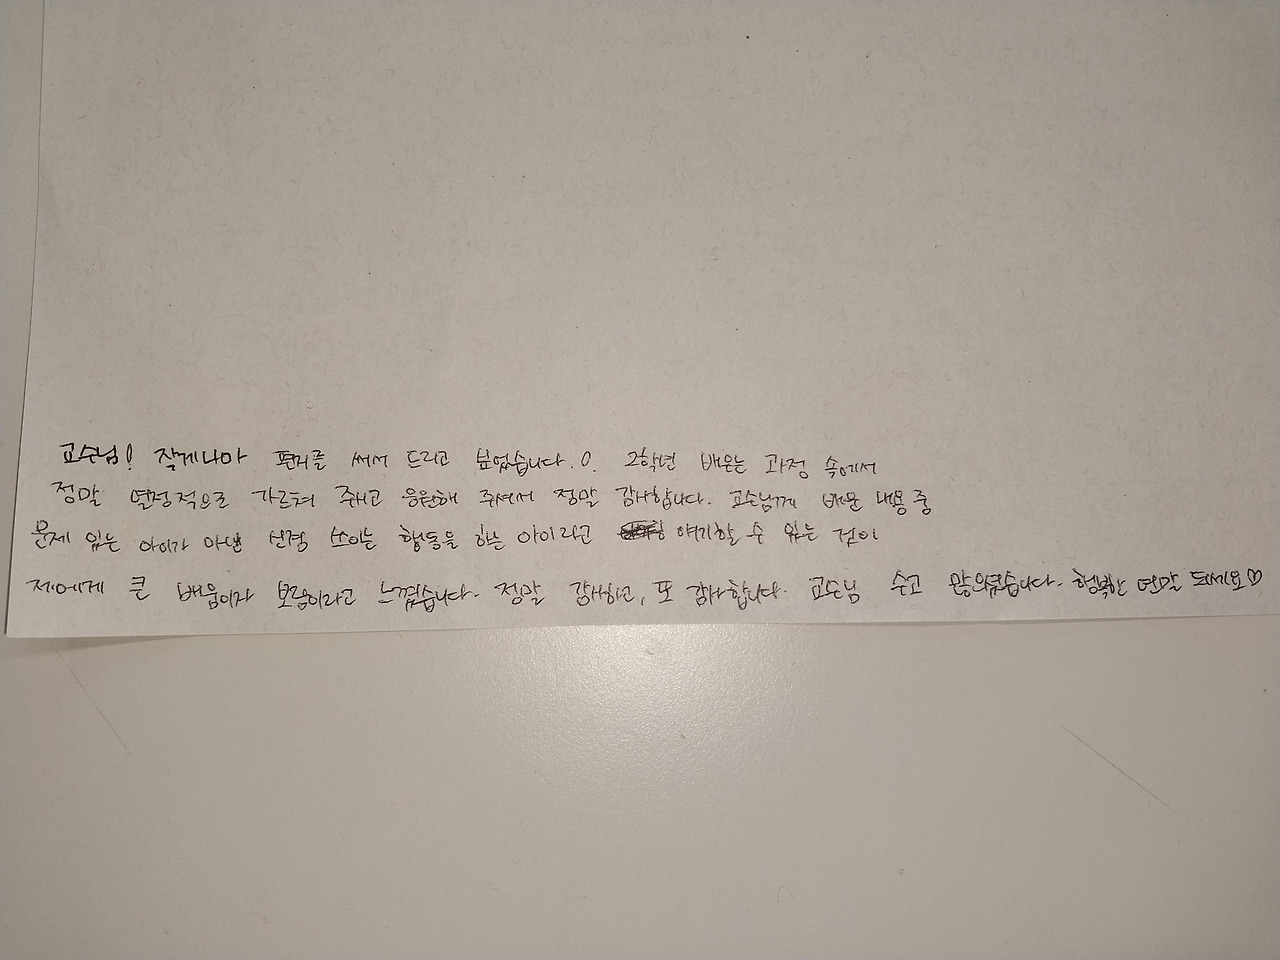 교수님! 작게나마 편지를 써서 드리고 싶었습니다.0. 2학년 배우는 과정 속에서
정말 열정적으로 가르쳐 주시고 응원해 주셔서 정말 감사합니다. 교수님께 배운 내용 중
문제 있는 아이가 아닌 신경 쓰이는 행동을 하는 아이라고 얘기할 수 있는 것이
저에게 큰 배움이자 보람이라고 느꼈습니다. 정말 감사하고, 또 감사합니다. 교수님 수고 많으셨습니다. 행복한 연말 되세요♡